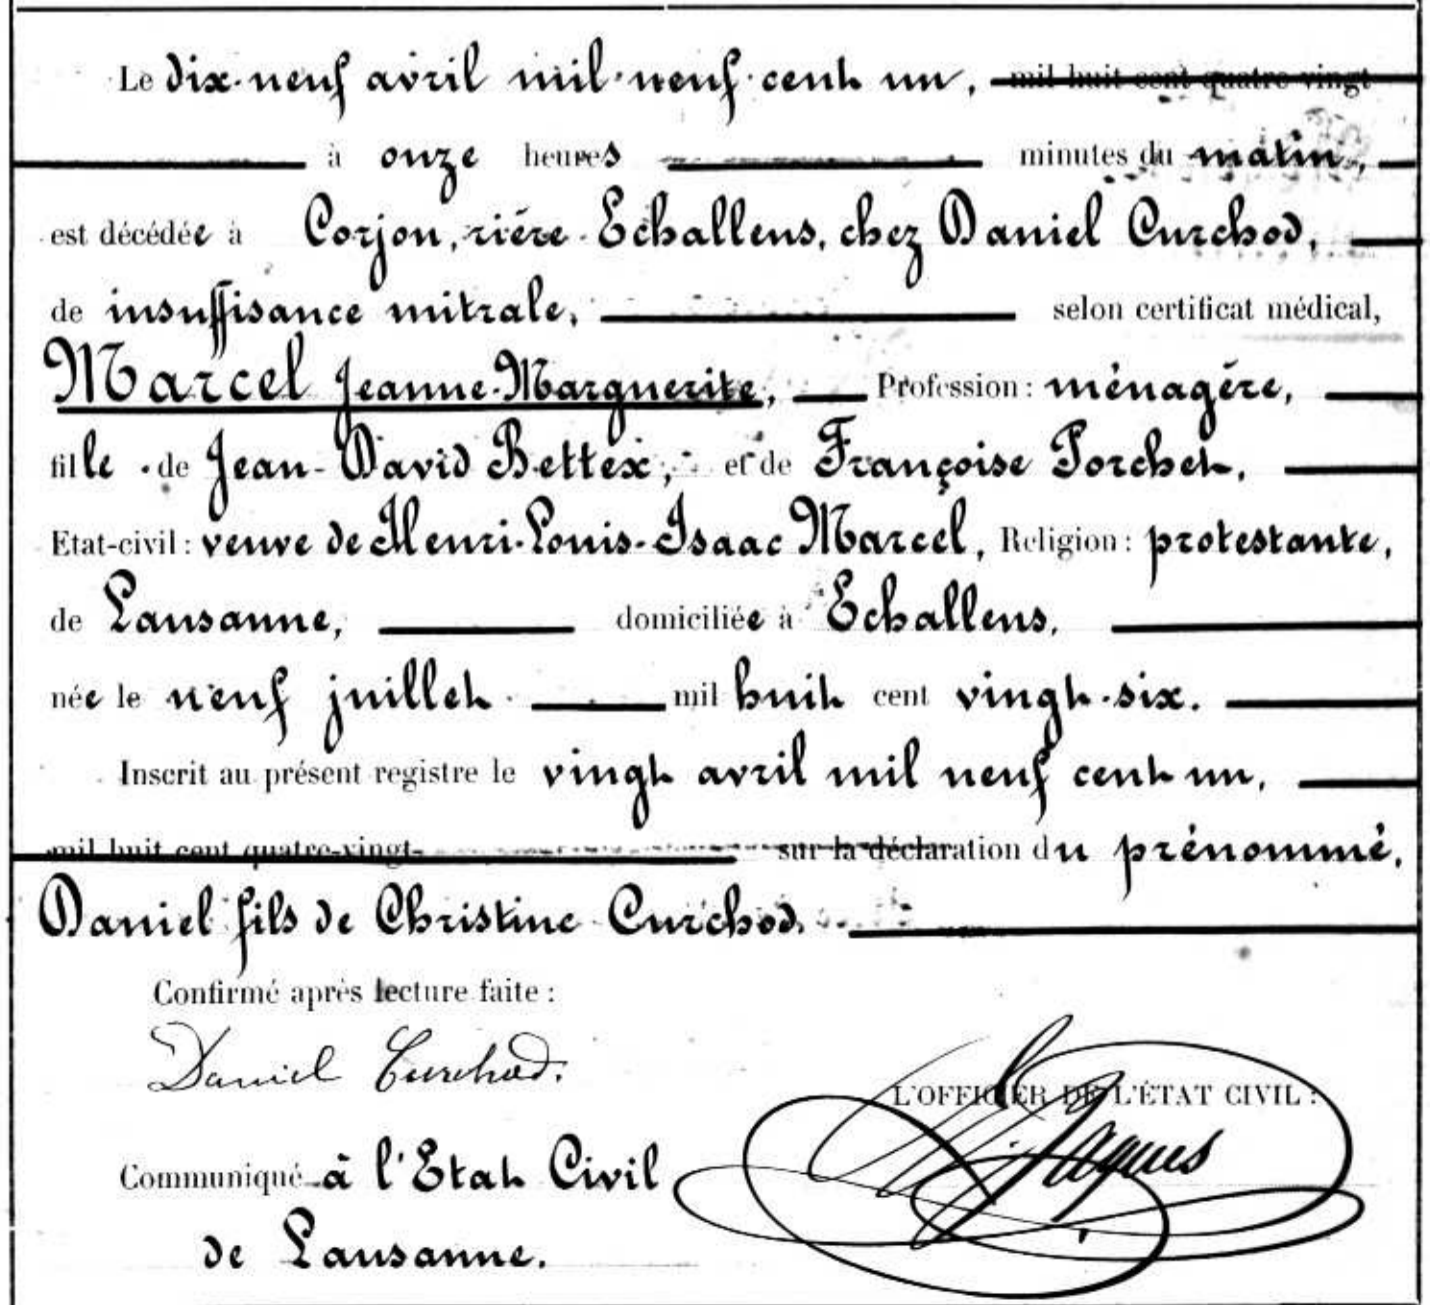 Le dix-neuf avril mil-neuf-cent un, mil huit cent quatre vingt
à onze heures minutes du matin,
est décédée à Corjon, rière Echallens, chez Daniel Curchod,
de insuffisance mitrale, selon certificat médical,
Marcel Jeanne-Marguerite, Profession : ménagère,
fille de Jean-David Bettex, et de Françoise Porchet,
Etat-civil : veuve de Henri-Louis-Isaac Marcel, Religion : protestante,
de Lausanne, domiciliée à Echallens,
née le neuf juillet mil huit cent vingt-six.
Inscrit au présent registre le vingt avril mil neuf cent un,
mil huit cent quatre-vingt- sur la déclaration du prénommé,
Daniel fils de Christine Curchod.
Confirmé après lecture faite :
Daniel Curchod.
L'OFFICIER DE L'ÉTAT CIVIL :
Jaques
Communiqué à l'Etat Civil
de Lausanne.